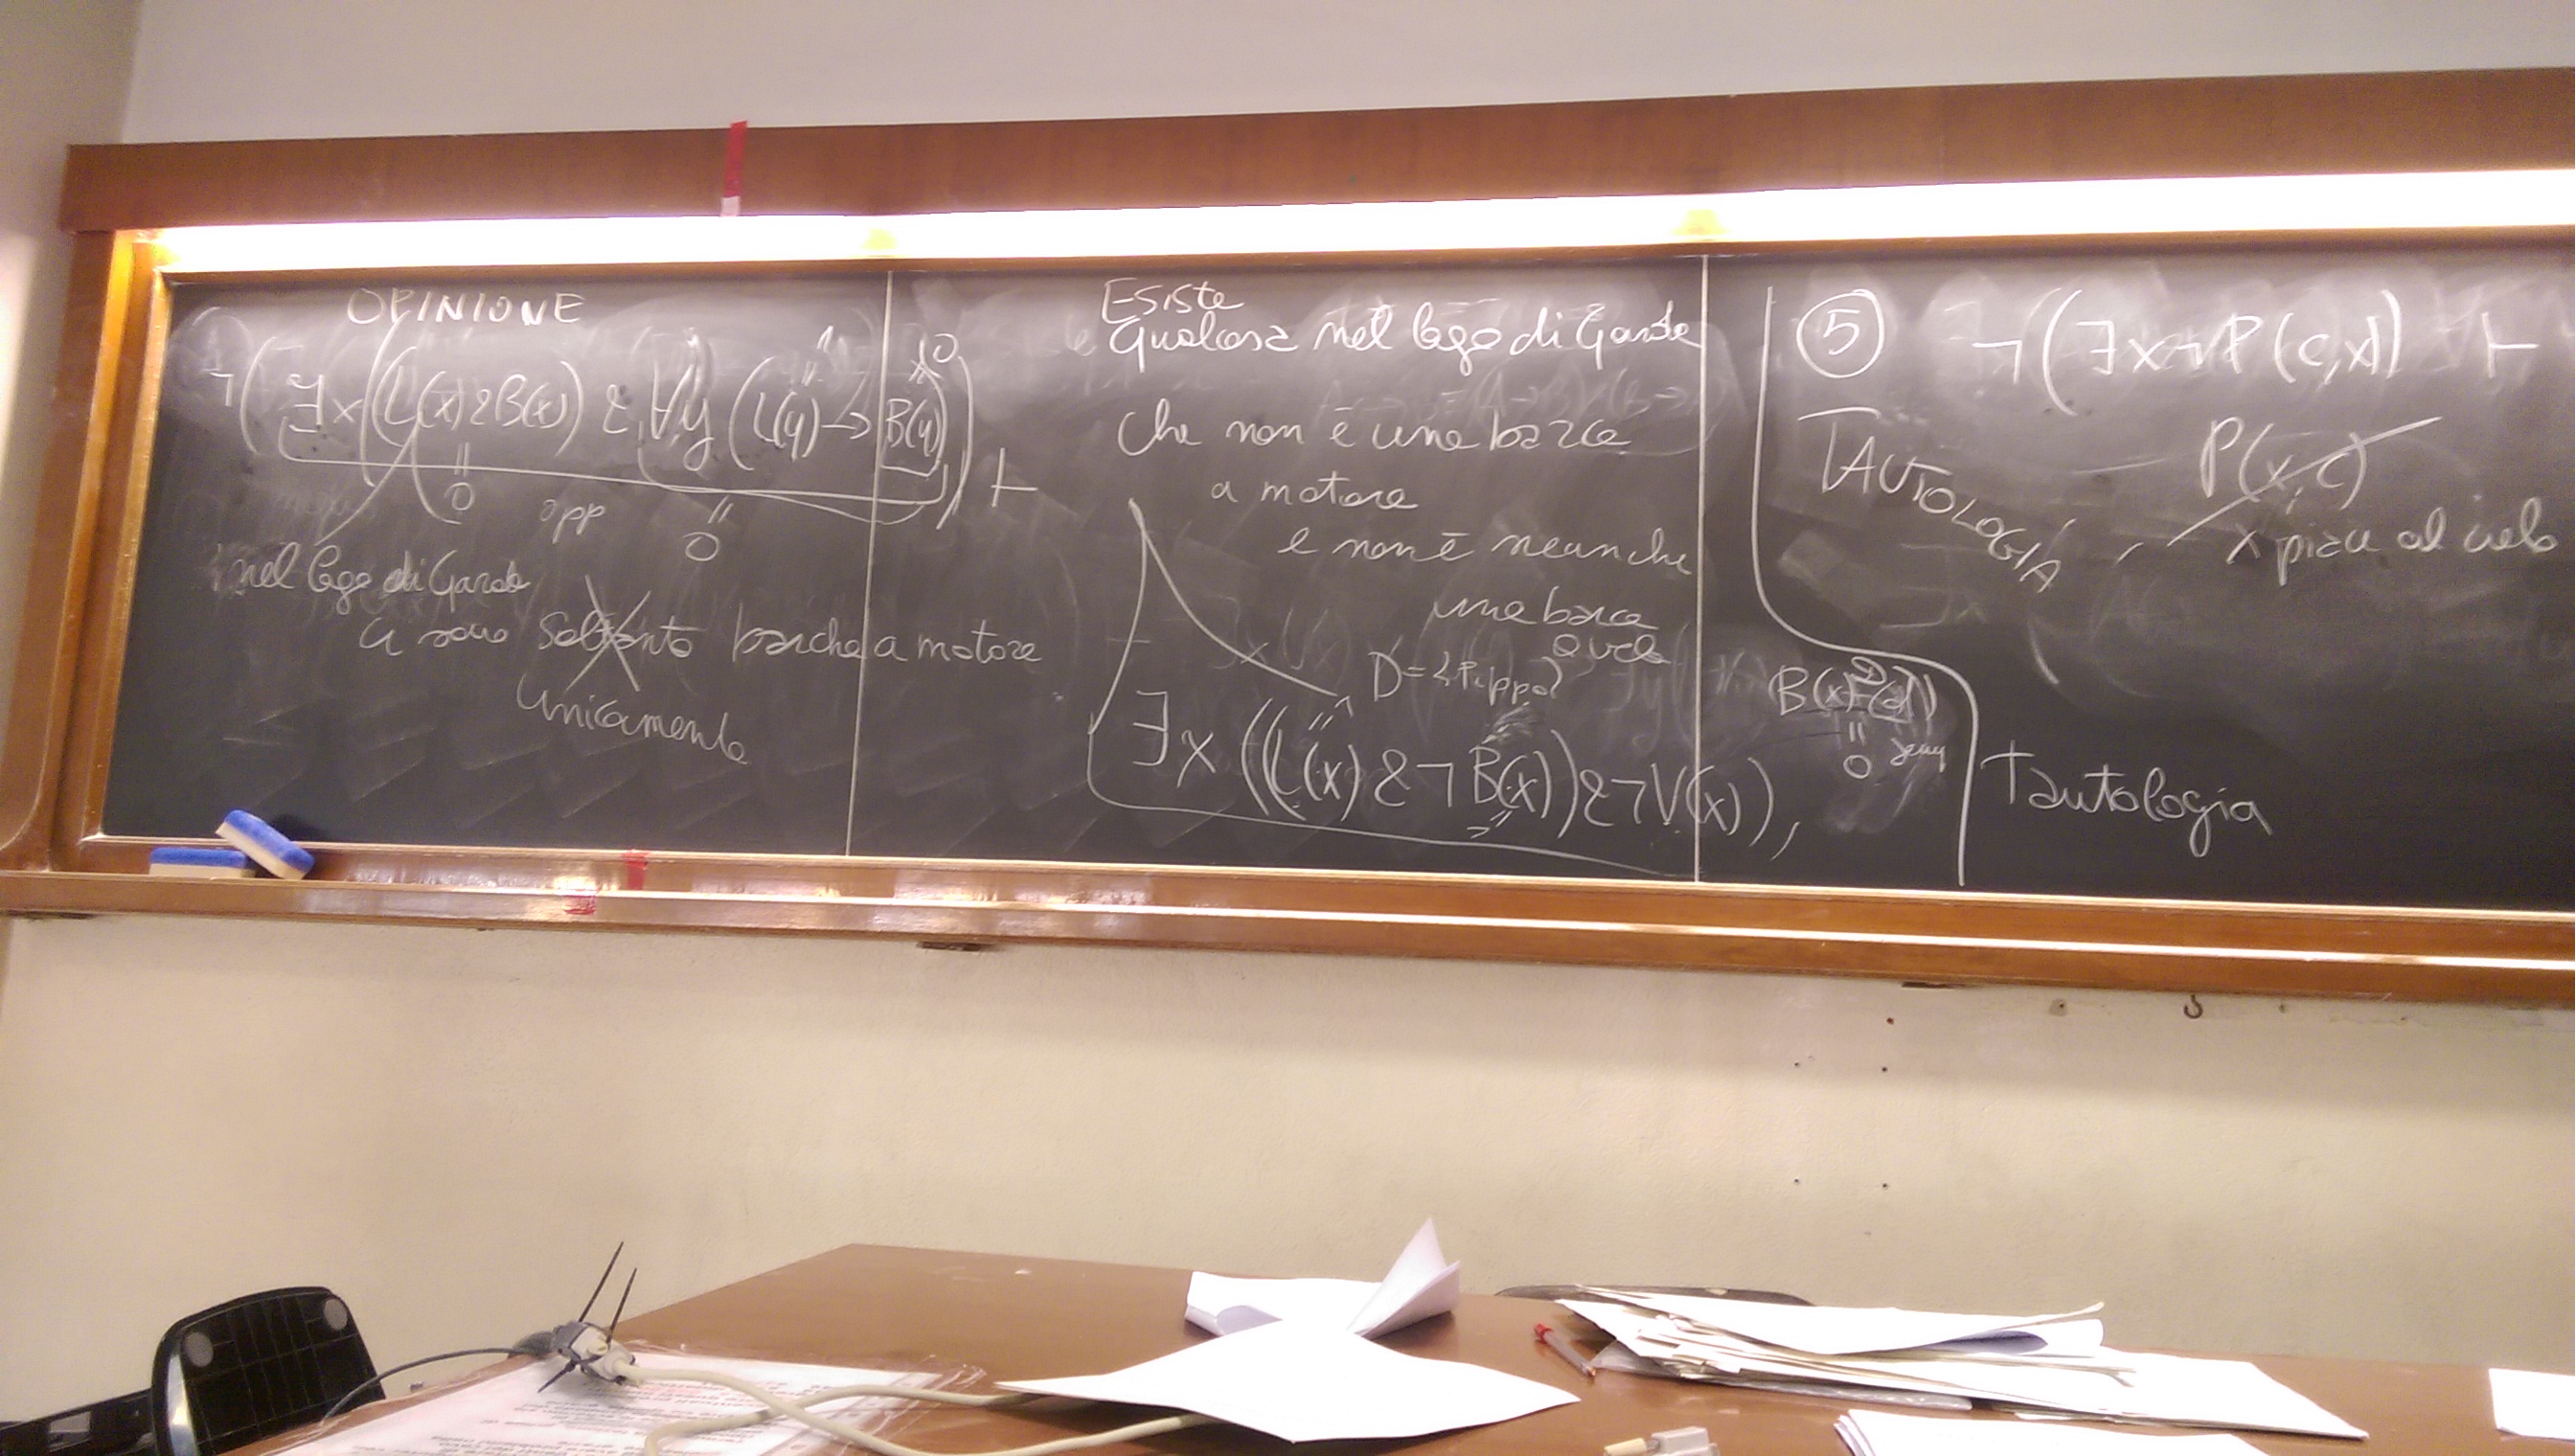 OPINIONE
¬(∃x((L(x)&B(x)) & ∀y(L(y)→B(y)))) ⊢
1
0
0
opp
0
nel lago di Garda
ci sono soltanto barche a motore
unicamente
Esiste
qualcosa nel lago di Garda
che non è una barca
a motore
e non è neanche
una barca
a vela
D={Pippo}
∃x((L(x)&¬B(x))&¬V(x)),
⑤ ¬(∃x¬P(c,x)) ⊢
TAUTOLOGIA
P(x,c)
x piace al cielo
0
Tautologia